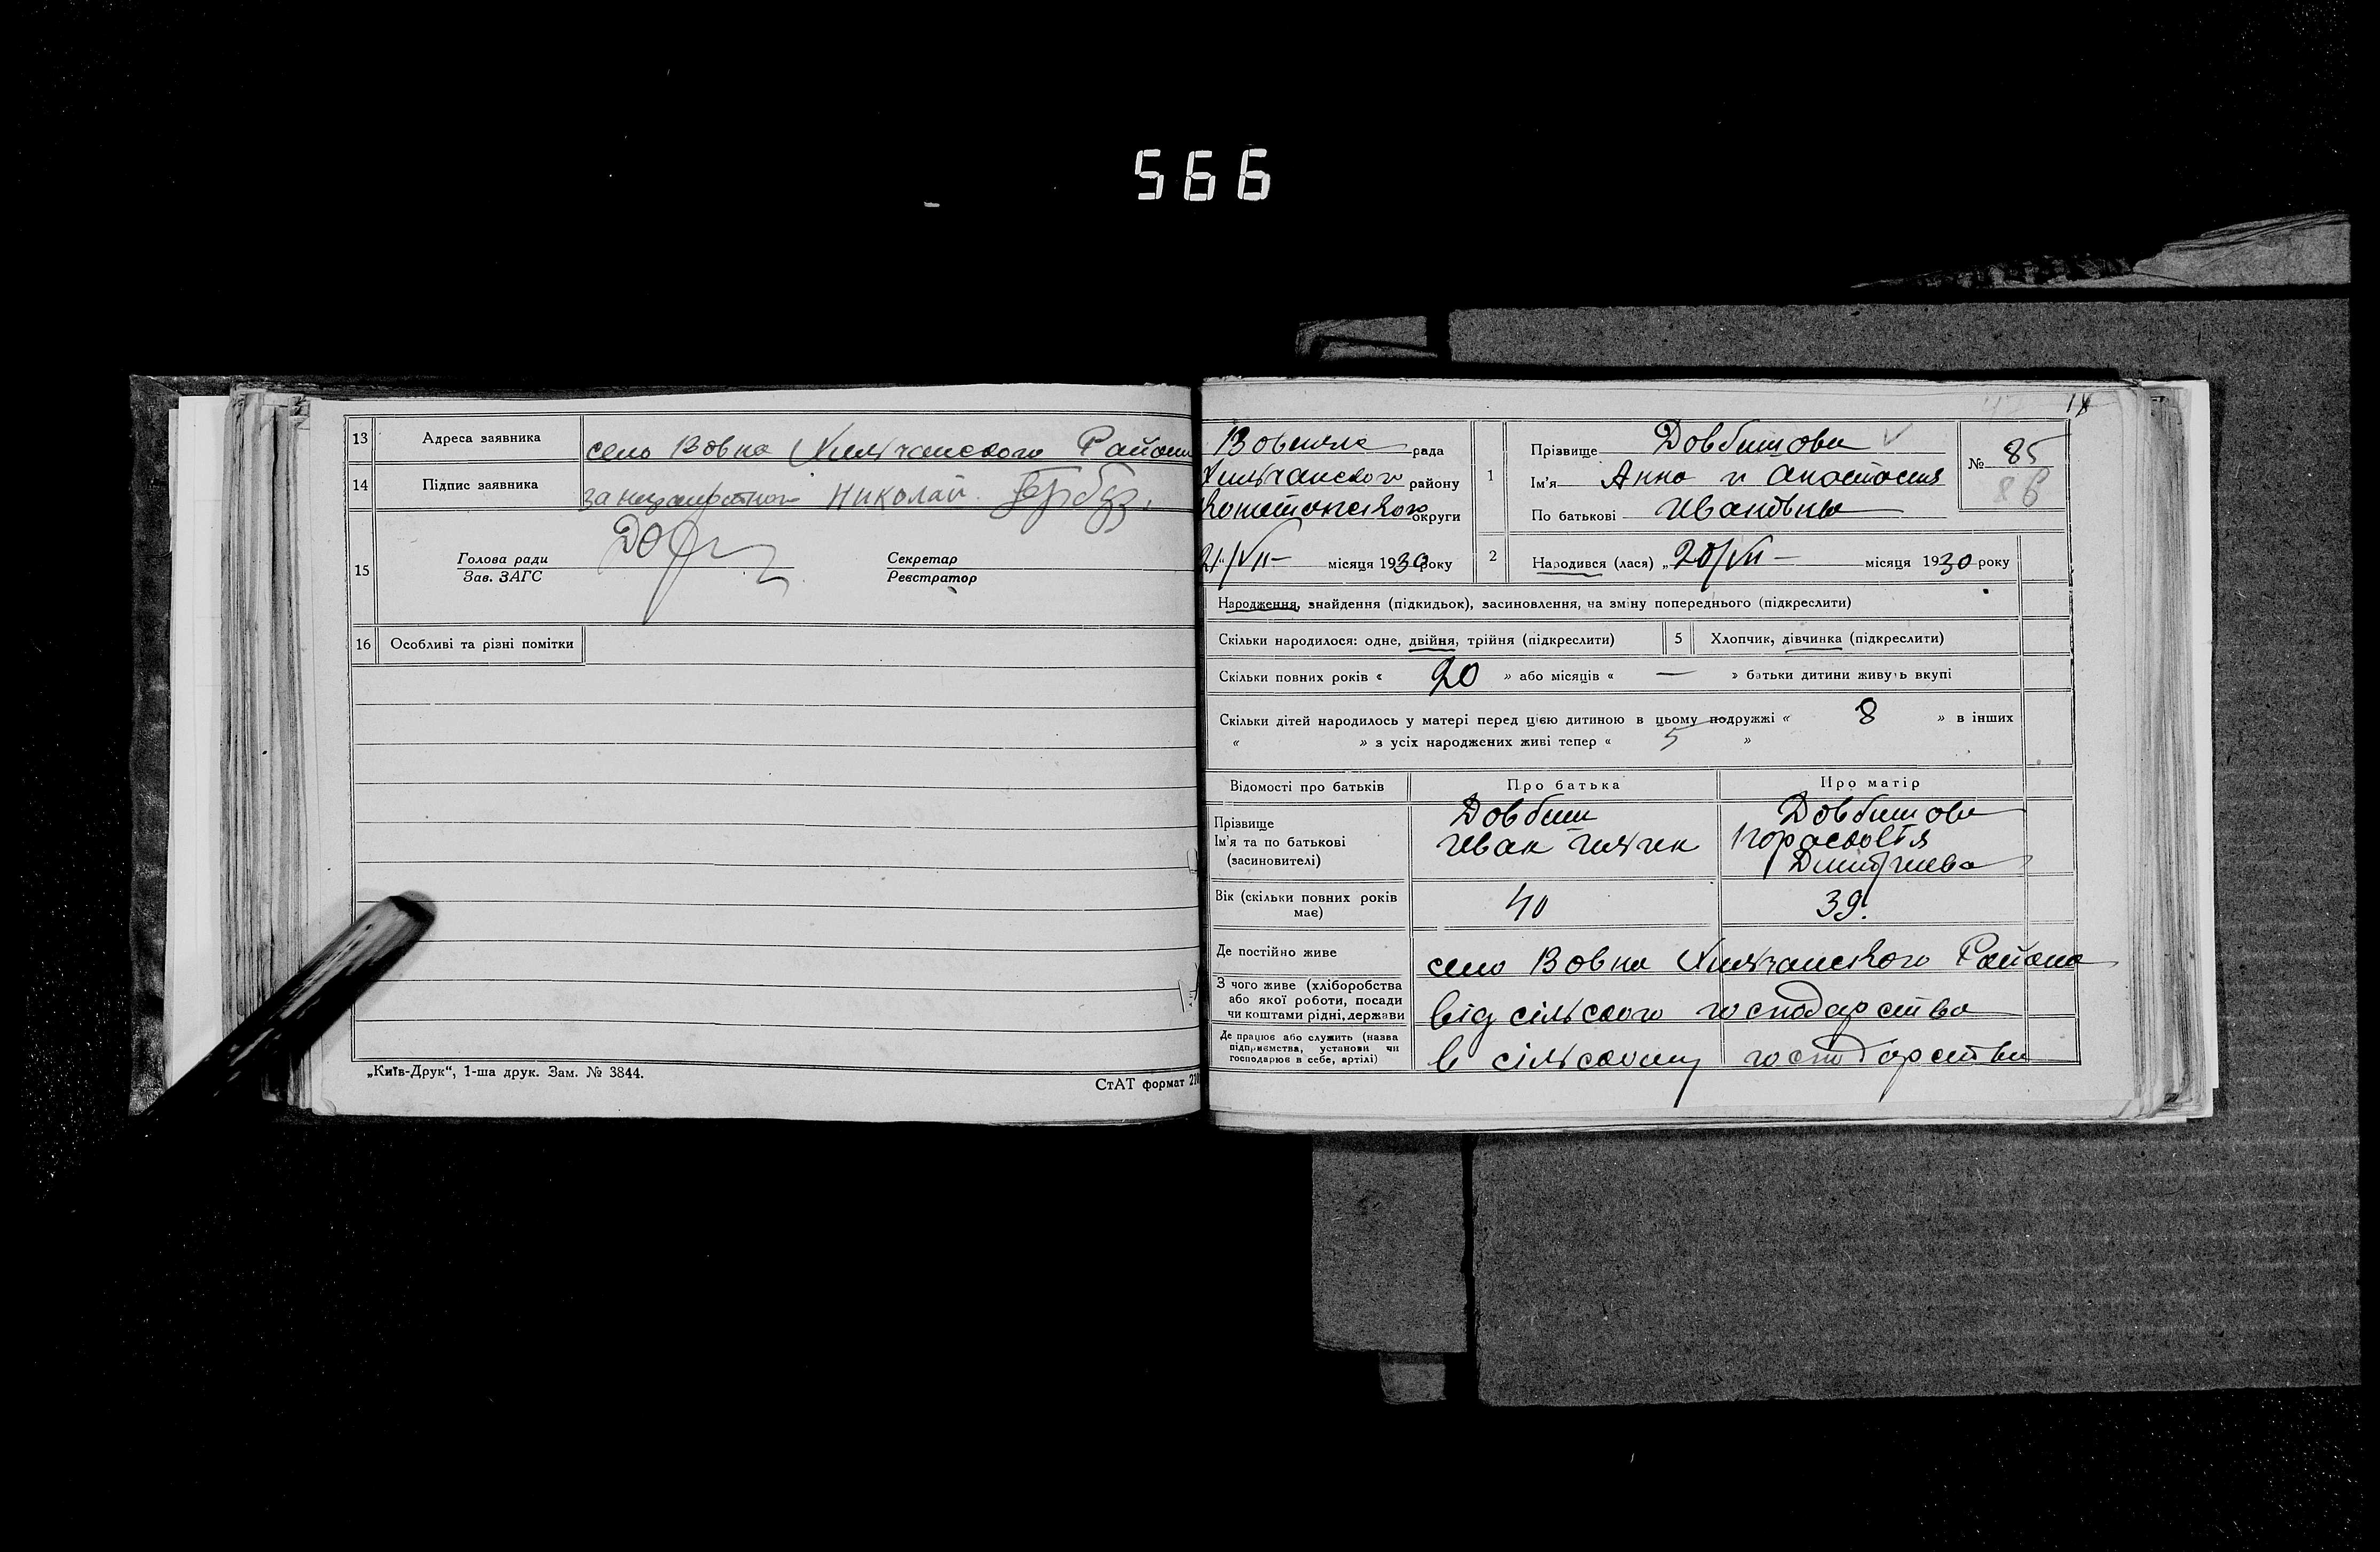 566
13 Адреса заявника село Вовна Хильчанского Района
14 Підпис заявника за неграмотного Николай
15 Голова ради
Зав. ЗАГС
Секретар
Реєстратор
16 Особливі та різні помітки
„Київ-Друк“, 1-ша друк. Зам. № 3844.
СтАТ формат
рада
Хильчанского району
округи
21/VII— місяця 1930 року
1 Прізвище Довбишова
Ім'я Анна и Анастасия
По батькові Ивановна
№ 85
86
2 Народився (лася) „20/VII— місяця 1930 року
Народження, знайдення (підкидьок), засиновлення, на зміну попереднього (підкреслити)
Скільки народилося: одне, двійня, трійня (підкреслити) 5 Хлопчик, дівчинка (підкреслити)
Скільки повних років « 20 » або місяців « — » батьки дитини живуть вкупі
Скільки дітей народилось у матері перед цією дитиною в цьому подружжі « 8 » в інших
« » з усіх народжених живі тепер « 5 »
Відомості про батьків Про батька Про матір
Прізвище Довбиш Довбишова
Ім'я та по батькові Иван
(засновителі) Дмитриева
Вік (скільки повних років має) 40 39.
Де постійно живе село Вовна Хильчанского Района
З чого живе (хліборобства
або якої роботи, посади
чи коштами рідні, держави від сільского господарства
Де працює або служить (назва
підприємства, установи чи
господарює в себе, артілі) в сільскому господарстви